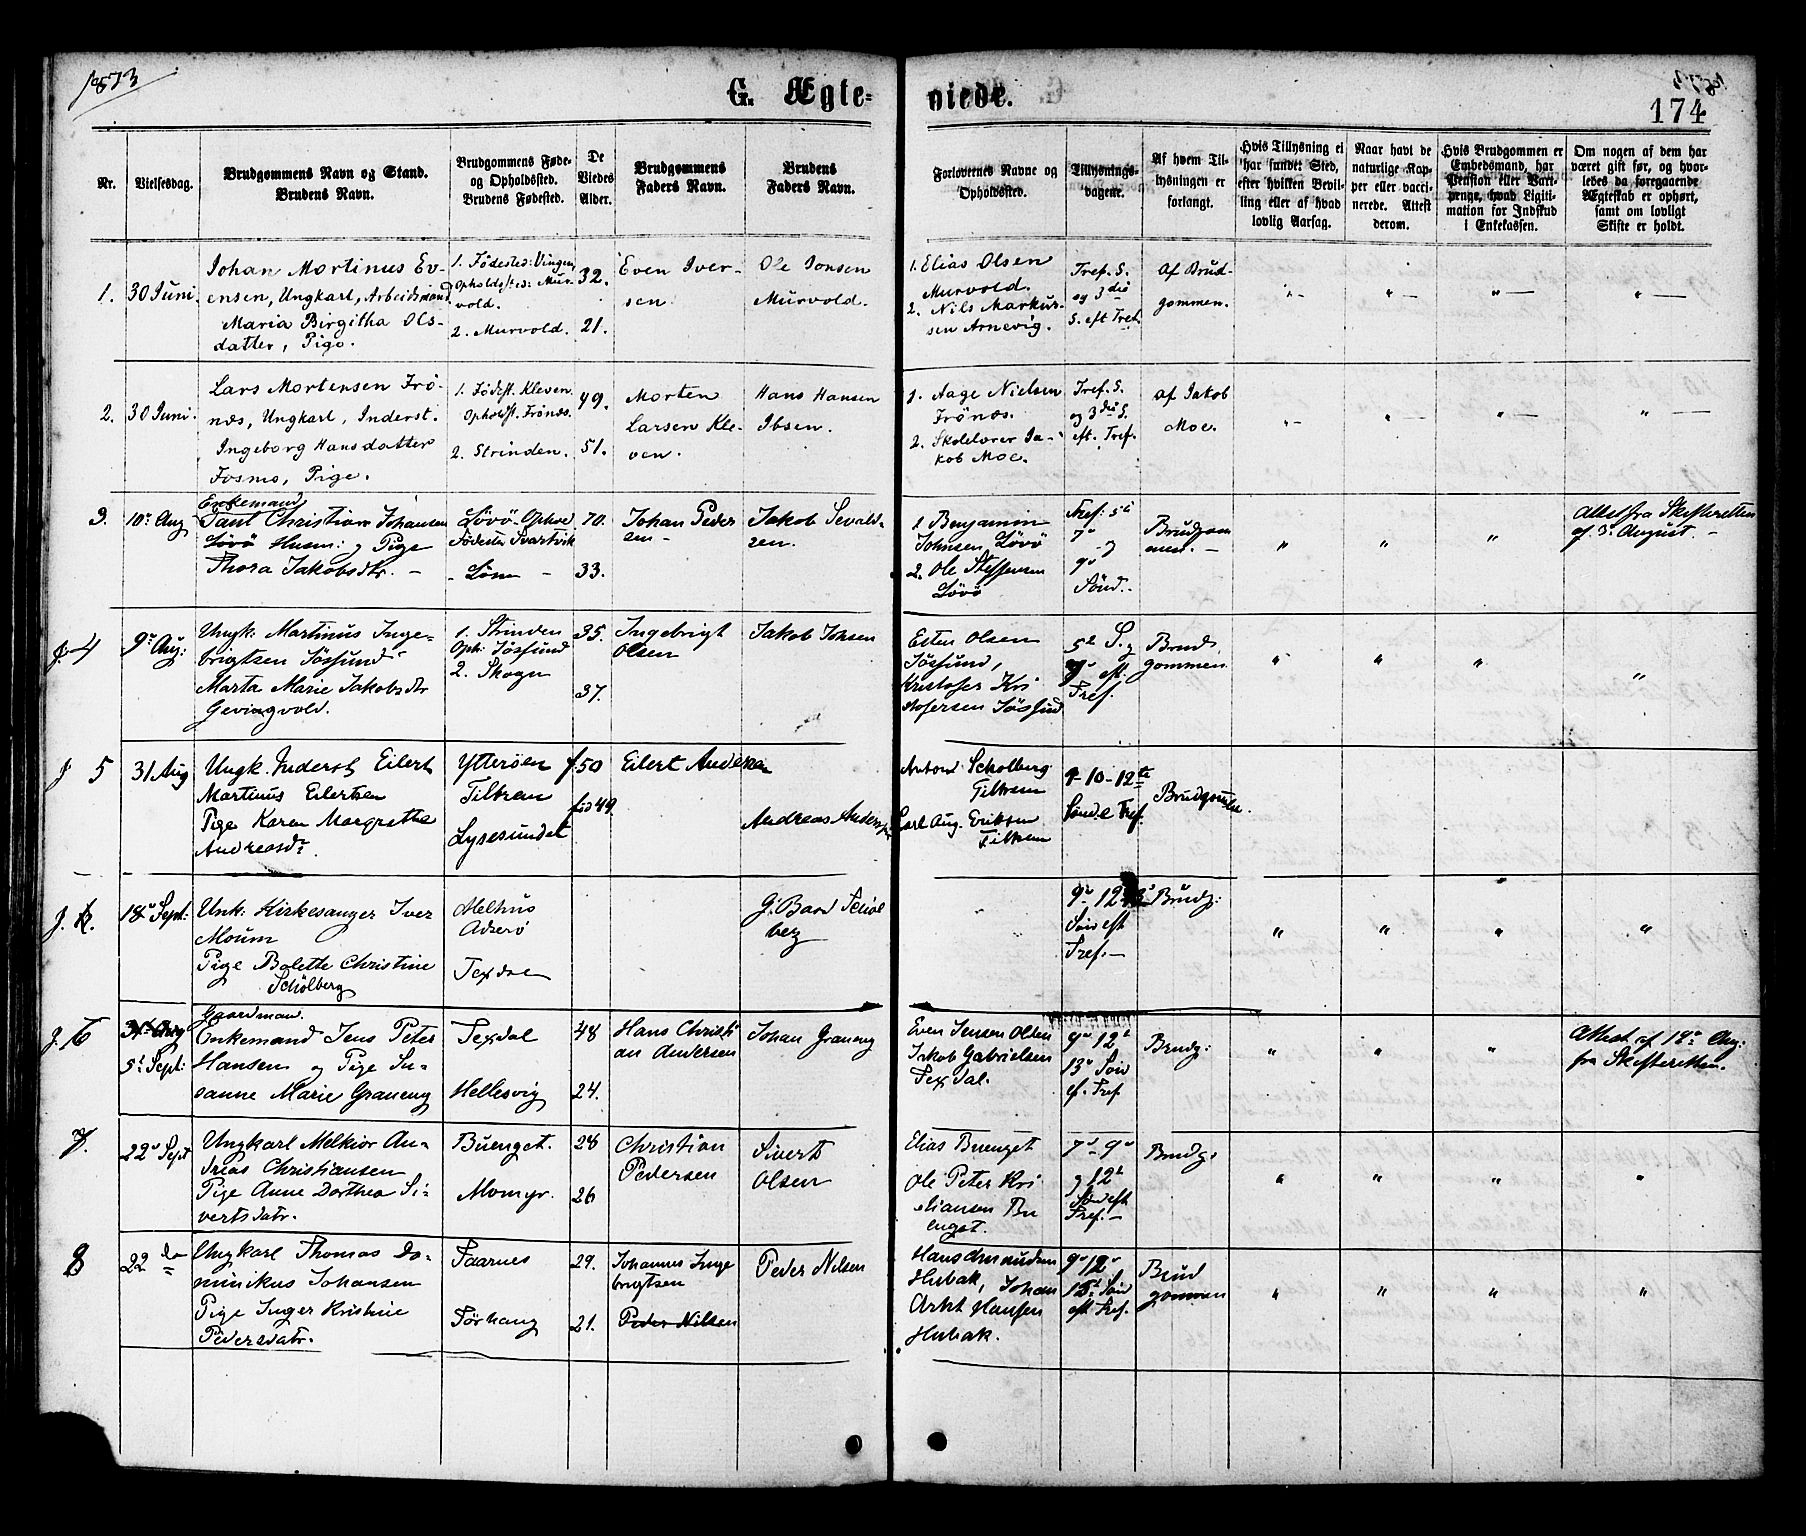 1873
G. Ægte=
viede.
174
Nr.
Vielsesdag.
Brudgommens Navn og Stand.
Brudens Navn.
Brudgommens Føde-
og Opholdssted.
Brudens Fødested.
De
Viedes
Alder.
Brudgommens
Faders Navn.
Brudens
Faders Navn.
Forlovernes Navne og
Opholdssted.
Tillysnings-
dagene.
Af hvem Til-
lysningen er
forlangt.
Hvis Tillysning ei
har fundet Sted,
efter hvilken Bevil-
ling eller af hvad
lovlig Aarsag.
Naar havt de
naturlige Kop-
per eller vacci-
nerede. Attest
derom.
Hvis Brudgommen er
Embedsmand, har
Pension eller Vart-
penge, hvad Ligiti-
mation for Indskud
i Enkekassen.
Om nogen af dem har
været gift før, og hvor-
ledes da foregaaende
Ægteskab er ophørt,
samt om lovligt
Skifte er holdt.
1.
30 Juni.
Johan Martinus Ev-
ensen, Ungkarl, Arbeidsmand
Maria Birgitha Ols-
datter, Pige.
1. Fødested: Vingen
Opholdssted: Mur-
vold.
2. Murvold.
32.
21.
Even Iver-
sen
Ole Jonsen
Murvold.
1. Elias Olsen
Murvold.
2. Nils Markus-
sen Arnevig.
Tref. S.
og 3die
S. eft Tref.
Af Brud-
gommen.
2.
30 Juni.
Lars Mortensen Frö-
næs, Ungkarl, Inderst.
Ingeborg Hansdatter
Fosmo, Pige.
1. Födest. Kleven
Opholdst. Frönæs.
2. Strinden.
49.
51.
Morten
Larsen Kle-
ven.
Hans Hansen
Ibsen.
1. Aage Nielsen
Frönæs.
2. Skolelærer Ja-
kob Moe.
Tref. S.
og 3die S.
eft. Tref.
af Jakob
Moe.
3.
10de Aug
Enkemand
Paul Christian Johansen
Lövö Husm: og Pige
Thora Jakobsdtr. -
Lövö - Ophold
Födested Svartvik
70.
33.
Johan Peder
sen -
Jakob Sevald-
sen.
1. Benjamin
Johnsen Lövö
2. Ole Steffensen
Lövö
Tref: 5te
7de
og
9de
Sönd.
Brudgom
men. -
Attest fra Skifteretten
af 3de August. -
j. 4
9de Aug:
Ungk: Martinus Inge-
brigtsen Jössund
Marta Marie Jakobsdtr
Gevingvold.
1. Strinden
Oph: Jössund
2. Skogn
35.
37.
Ingebrigt
Olsen
Jakob Johsen
Esten Olsen
Jössund,
Kristofer Kri
stofersen Jössund
5te S. og
7de eft.
Tref.
Brud
gommen
j 5
31 Aug
Ungk. Inderst Eilert
Martinus Eilertsen
Pige Karen Margrethe
Andreasdr.
Ytteröen
Tiltrem
Lysesundet
f. 50
49
Eilert Andersen
Andreas Andersen
Anton Schölberg
Tiltrem
Carl Aug. Eriksen
Tiltrem
9-10-12te
Sönd. e Tref.
Brudgommen.
18de Sept:
Unk: Kirkesanger Iver
Moum
Pige Bolette Christine
Schölberg
Melhus
Texdal
G: Baard Schöl
berg
9de 12te
Sön eft
Tref. -
Brudg:
j. 6
5te Sept:
Gaardmand.
Enkemand Jens Peter
Hansen og Pige Su-
sanne Marie Graneng
Texdal
Hellesvig
48
24.
Hans Christi
an Andersen
Johan Graneng
Even Jensen Olden
Jakob Gabrielsen
Texdal.
9de 12te
13de Sön
ef. Tref
Brudg:
Attest af 12te Aug:
fra Skifteretten.
7.
22de Sept
Ungkarl Melkior An-
dreas Christiansen
Pige Anne Dorthea Si-
vertsdatr.
Buenget.
Momyr.
28
26
Christian
Pedersen
Sivert
Olsen
Elias Buenget
Ole Peter Kri
stiansen Bu
enget.
7de 9de
og 12te
Sön eft
Tref. -
Brudg:
8
22 do
Ungkarl Thomas Do-
minikus Johansen
Pige Inger Kristine
Pedersdatr.
Taarnes
Törhaug
29.
21.
Johannes Inge
brigtsen
Peder Nilsen
Peder Nilsen
Hans Amundsen
Hubak, Johan
Arnt Hansen
Hubak.
9de 12de
13de Sön
eft Tref.
Brud
gommen